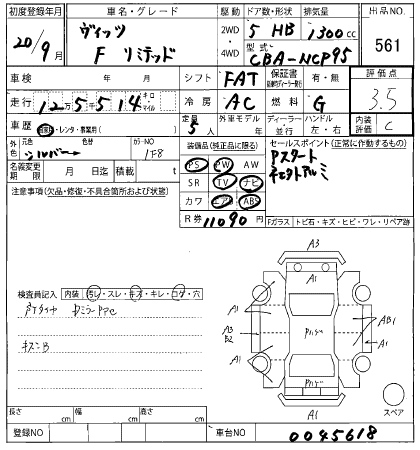 初度登録年月 車名・グレード 駆動 ドア数・形状 排気量 出品NO.
20/9月 ヴィッツ 2WD 5 HB 1300cc 561
F リミテッド 4WD 型式 CBA-NCP95
車検 年 月 シフト FAT 保証書 有・無 評価点
走行 12万5514 キロ マイル 冷房 AC 燃料 G 3.5
車歴 自家・レンタ・事業用( ) 定員 5人 外車モデル 年 ディーラー 並行 ハンドル 左・右 内装評価 C
外色 元色 シルバー 色替 カラーNO 1F8 装備品(純正品に限る) セールスポイント(正常に作動するもの)
名義変更期限 月 日迄 積載 t PS PW AW Pスタート
注意事項(欠品・修復・不具合箇所および状態) SR TV ナビ
カワ エアB ABS
R券 11090円 Fガラス トビ石・キズ・ヒビ・ワレ・リペア跡
検査員記入 内装 汚レ・スレ・キズ・キレ・コゲ・穴
キズ小B
A3
A1
A1 A1
A3
B2
AB1
A1
A1
A1
A1
スペア
長さ cm 幅 cm 高さ cm
登録NO 車台NO 0045618